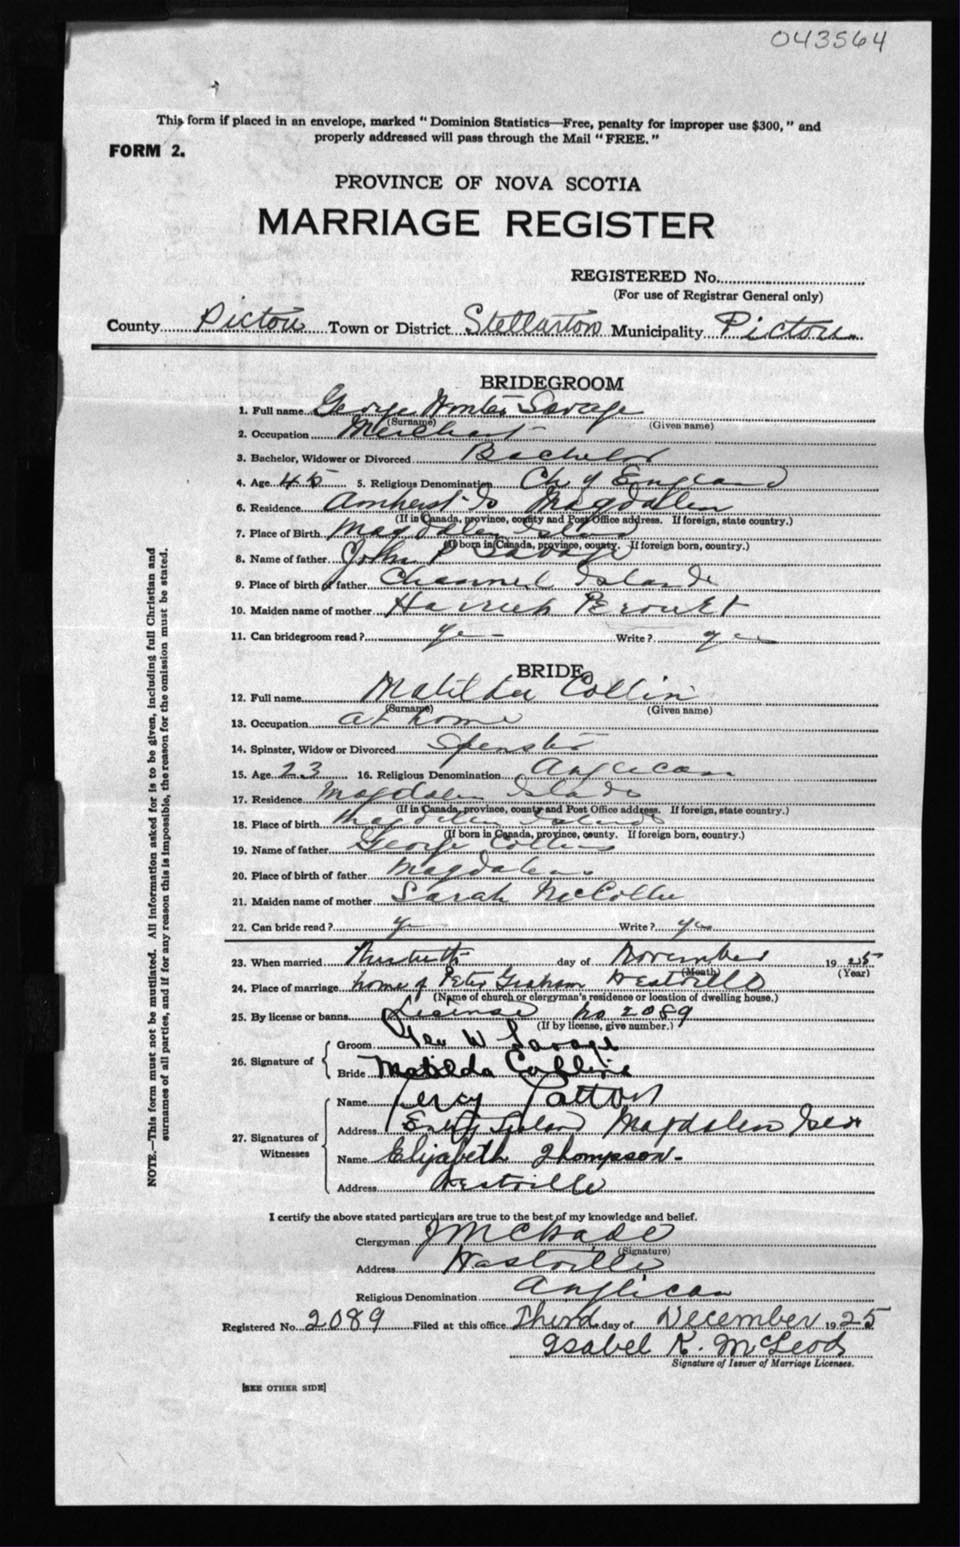 043564
This form if placed in an envelope, marked "Dominion Statistics—Free, penalty for improper use $300," and
properly addressed will pass through the Mail "FREE."
FORM 2.
PROVINCE OF NOVA SCOTIA
MARRIAGE REGISTER
REGISTERED No.
(For use of Registrar General only)
County Pictou Town or District Stellarton Municipality Pictou
BRIDEGROOM
1. Full name George Savage
(Surname) (Given name)
2. Occupation Merchant
3. Bachelor, Widower or Divorced Bachelor
4. Age 45 5. Religious Denomination Ch of England
6. Residence Amherst Is Magdalen
(If in Canada, province, county and Post Office address. If foreign, state country.)
7. Place of Birth Magdalen Island
(If born in Canada, province, county. If foreign born, country.)
8. Name of father John P Savage
9. Place of birth of father Channel Islands
10. Maiden name of mother
11. Can bridegroom read? yes Write? yes
BRIDE
12. Full name Matilda Collins
(Surname) (Given name)
13. Occupation at home
14. Spinster, Widow or Divorced Spinster
15. Age 23 16. Religious Denomination Anglican
17. Residence Magdalen Islands
(If in Canada, province, county and Post Office address. If foreign, state country.)
18. Place of birth Magdalen Islands
(If born in Canada, province, county. If foreign born, country.)
19. Name of father George Collins
20. Place of birth of father Magdalens
21. Maiden name of mother Sarah
22. Can bride read? yes Write? yes
23. When married day of November 1925
(Month) (Year)
24. Place of marriage home of Peter Graham Westville
(Name of church or clergyman's residence or location of dwelling house.)
25. By license or banns License no 2089
(If by license, give number.)
26. Signature of Groom Geo W Savage
Bride Matilda Collins
27. Signatures of Witnesses Name Percy Patton
Address Entry Island Magdalen
Name Elizabeth Thompson
Address Westville
I certify the above stated particulars are true to the best of my knowledge and belief.
Clergyman
(Signature)
Address Westville
Religious Denomination Anglican
Registered No. 2089 Filed at this office Third day of December 1925
Isabel K. McLeod
Signature of Issuer of Marriage Licenses.
[SEE OTHER SIDE]
NOTE.—This form must not be mutilated. All information asked for is to be given, including full Christian and
surnames of all parties, and if for any reason this is impossible, the reason for the omission must be stated.